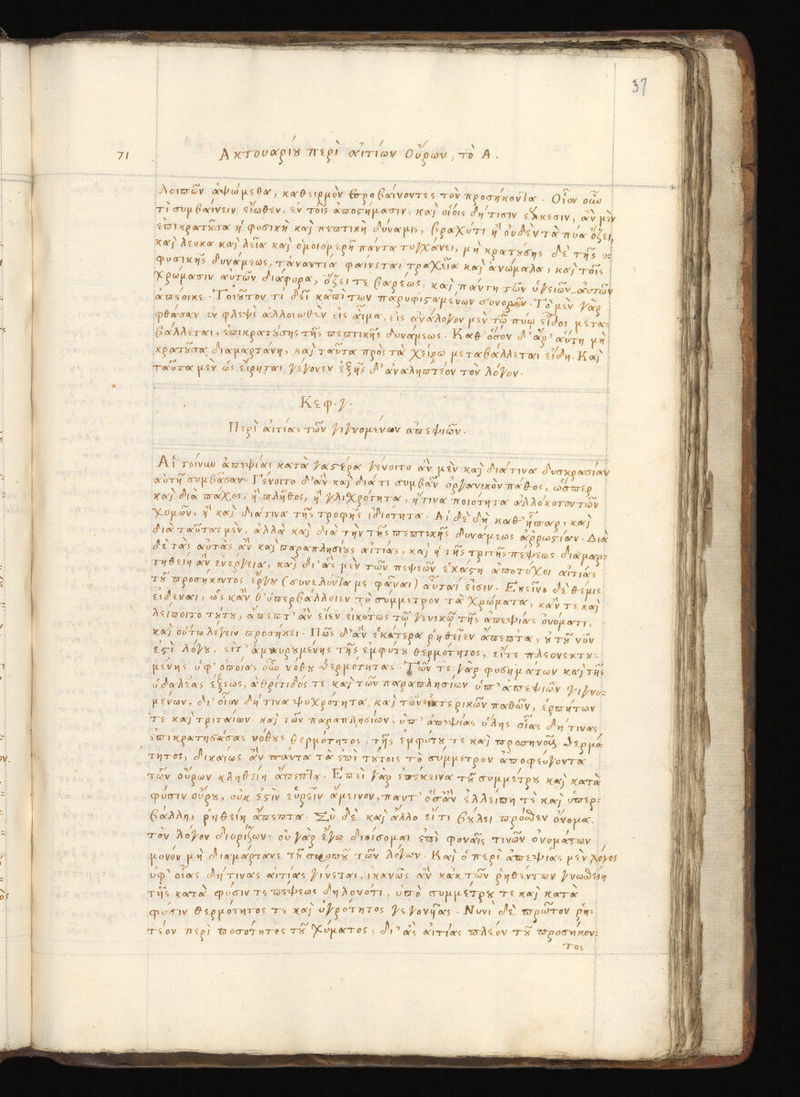 37
71 Ακτουαρίȣ περὶ αἰτίων Οὔρων, τὸ Α.
λοιπῶν ἁψώμεθα, καθειρμὸν προβαίνοντες τὸν προσήκοντα. Οἷον οὖν
τὶ συμβαίνειν εἴωθεν, ἐν τοῖς ἀποστήμασιν, καὶ οἷοις δή τισιν ἕλκεσιν, ἂν μὲν
ἐπικρατȣ͂σα ἡ φυσικὴ καὶ πεπτικὴ δύναμις, βραχύτι ἢ ȣ̓δὲν τὰ πύα ὄζει,
καὶ λευκα καὶ λεῖα καὶ ὁμοιομερῆ πάντα τυγχάνει, μὴ κρατȣ́σης δὲ τῆς
φυσικῆς δυνάμεως, τἀναντία φαίνεται τραχεῖα καὶ ἀνώμαλα, καὶ τοῖς
χρώμασιν αὐτῶν διάφορα, ὄζει τε βαρέως, καὶ πάντη τῶν ὑγειῶν αὐτῶν
ἀπέοικε. Τοιȣ͂τον τι δεῖ κἀπὶ των παρυφισταμένων συνορᾶν. Τὸ μὲν γὰρ
φθάσαν ἐν φλεψὶ ἀλλοιωθὲν εἰς αἷμα, εἰς ἀνάλογον μὲν τῷ πύῳ εἶδος μετα-
βάλλεται, ἐπικρατȣ́σης τῆς πεπτικῆς δυνάμεως. Καθ' ὅσον δ' ἂρ' αὕτη μὴ
κρατȣ͂σα διαμαρτάνῃ, καὶ ταῦτα πρὸς τὰ χείρω μεταβάλλεται εἴδη. Καὶ
ταῦτα μὲν ὡς εἴρηται γέγονεν ἑξῆς δ' ἀναληπτέον τὸν λόγον.
Κεφ. γ.
Περὶ αἰτίας τῶν γιγνομένων ἀπεψιῶν.
Αἱ τοίνυν ἀπεψίαι κατὰ γαστέρα γένοιτο ἂν μὲν καὶ διά τινα δυσκρασίαν
αὐτῇ συμβᾶσαν. Γένοιτο δ' ἂν καὶ διά τι συμβὰν ὀργανικὸν πάθος, ὥσπερ
καὶ διὰ πάχος, ἢ πλῆθος, ἢ γλισχρότητα, ἤ τινα ποιότητα ἀλλόκοτον τῶν
χυμῶν, ἢ καὶ διά τινα τῆς τροφῆς ἰδιότητα. Αἱ δὲ δὴ καθ' ἧπαρ, καὶ
διὰ ταῦτας μὲν, ἀλλὰ καὶ διὰ τὴν τῆς πεπτικῆς δυνάμεως ἀῤῥωστίαν. Διὰ
δὲ τὰς αὐτὰς ἂν καὶ παραπλησίȣς αἰτίας, καὶ ἡ τῆς τρίτης πέψεως διαμαρ-
τηθείη ἂν ἐνέργεια, καὶ δι' ἃς μὲν τῶν πέψεων ἑκάστη ἀποτύχοι αἰτίας
τȣ͂ προσήκοντος ἔργȣ (συνελόντα με φᾶναι) αὗταί εἰσιν. Ἐκεῖνο δὲ θέμις
εἰδέναι, ὡς κἂν θ' ὑπερβάλλοιεν τὸ σύμμετρον τὰ χρώματα, κἄν τε καὶ
λείποιτο τȣ́τȣ, ἄπεπτ' ἂν εἶεν εἰκότως τῷ γενικῷ τῆς ἀπεψίας ὀνόματι,
καὶ οὕτω λέγειν προσήκει. Πῶς δ' ἂν ἑκάτερα ῥηθεῖεν ἄπεπτα, ȣ̓ τȣ͂ νῦν
ἐστὶ λόγȣ, εἴτ' ἀμαυρȣμένης τῆς ἐμφύτȣ θερμότητος, εἴτε πλεονεκτȣ-
μένης ὑφ' ὁποίας οὖν νόθȣ θερμότητας. Τῶν τε γὰρ φυσημάτων καὶ τῆς
ὑδαλέας ἕξεως, ἀθρίτιδός τε καὶ τῶν παραπλησίων ὑπ' ἀπεψιῶν γιγνο-
μένων, δι' οἷαν δή τινα ψυχρότητα, καὶ τῶν ἰκτερικῶν παθῶν, ἑρπήτων
τε καὶ τριταίων καὶ τῶν παραπλησίων, ὑπ' ἀπεψίας ὕλης οἵας δή τινας
ἐπικρατησάσας νόθȣς θερμότητος, τῆς ἐμφύτȣ τε καὶ προσηνοῦς θερμό-
τητος, δικαίως ἂν πάντα τὰ ἐπὶ τȣ́τοις τὸ σύμμετρον ἀποφεύγοντα
τῶν οὔρων κληθείη ἄπεπτα. Ἐπεὶ γὰρ ἐπέκεινα τȣ͂ συμμέτρȣ καὶ κατὰ
φύσιν οὔρȣ, οὐκ ἔστιν εὑρεῖν ἄμεινον, παντ' ὅσ' ἂν ἐλλείπῃ τε καὶ ὑπερ-
βάλλῃ, ῥηθείη ἄπεπτα. Σὺ δὲ καὶ ἄλλο εἴ τι βȣ́λει πρόσθεν ὄνομα,
τὸν λόγον διορίζων· οὐ γὰρ ἔγω διοίσομαι ἐπὶ φοναῖς τινῶν ὀνομάτων
μόνον μὴ διαμάρτανε τȣ͂ σκοπȣ͂ τῶν λόγων. Καὶ ὁ περὶ ἀπεψίας μὲν λόγος
ὑφ' οἵας δή τινας αἰτίας γίνεται, ἱκανῶς ἂν κἀκ τῶν ῥηθέντων γνωθείη
τῆς κατὰ φύσιν τε πέψεως δηλονότι, ὑπὸ συμμέτρȣ τε καὶ κατὰ
φύσιν θερμότητος τε καὶ ὑγρότητος γεγονυίας. Νυνὶ δὲ πρῶτον ῥη-
τέον περὶ ποσότητος τȣ͂ χύματος, δι' ἃς αἰτίας πλέον τȣ͂ προσήκον-
τος